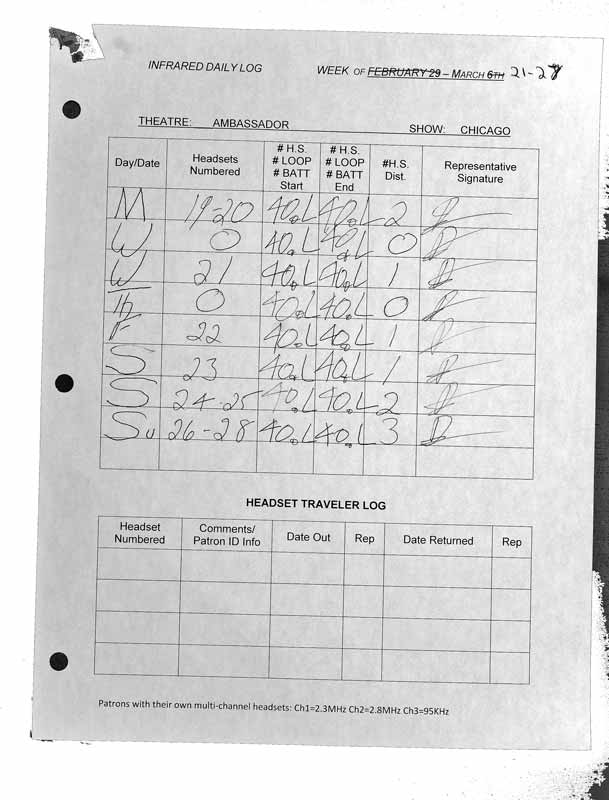 INFRARED DAILY LOG WEEK OF FEBRUARY 29 – MARCH 6TH 21-27
THEATRE: AMBASSADOR SHOW: CHICAGO
Day/Date Headsets Numbered # H.S. # LOOP # BATT Start # H.S. # LOOP # BATT End #H.S. Dist. Representative Signature
M 19-20 40.L 40.L 2
W 0 40.L 40.L 0
W 21 40.L 40.L 1
Th 0 40.L 40.L 0
F 22 40.L 40.L 1
S 23 40.L 40.L 1
S 24-25 40.L 40.L 2
Su 26-28 40.L 40.L 3
HEADSET TRAVELER LOG
Headset Numbered Comments/ Patron ID Info Date Out Rep Date Returned Rep
Patrons with their own multi-channel headsets: Ch1=2.3MHz Ch2=2.8MHz Ch3=95KHz